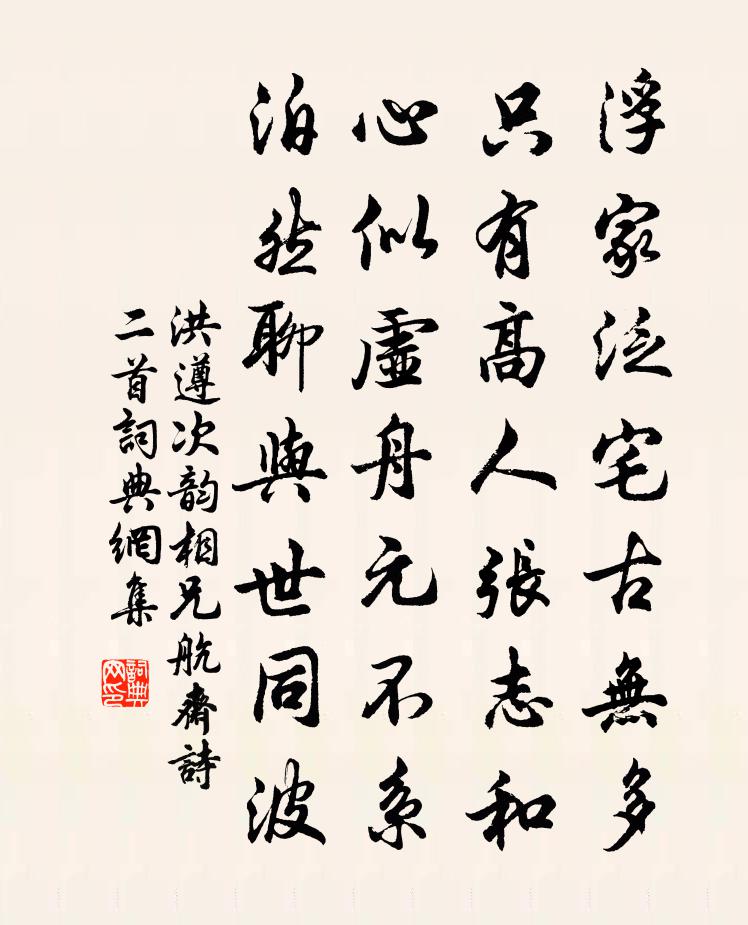 浮家泛宅古無多
只有高人張志和
心似虛舟元不系
泊然聊與世同波
洪遵次韵相兄航齋詩
二首詞典網集
詞典
网印